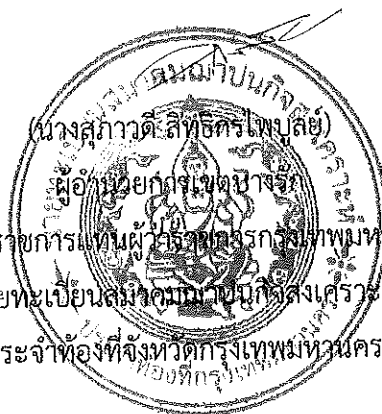 (นางสุภาวดี สิทธิกรไพบูลย์)
ผู้อำนวยการเขตบางรัก
ราชการแทนผู้ว่าราชการกรุงเทพมห
ยทะเบียนสมาคมฌาปนกิจสงเคราะ
ระจำท้องที่จังหวัดกรุงเทพมหานคร